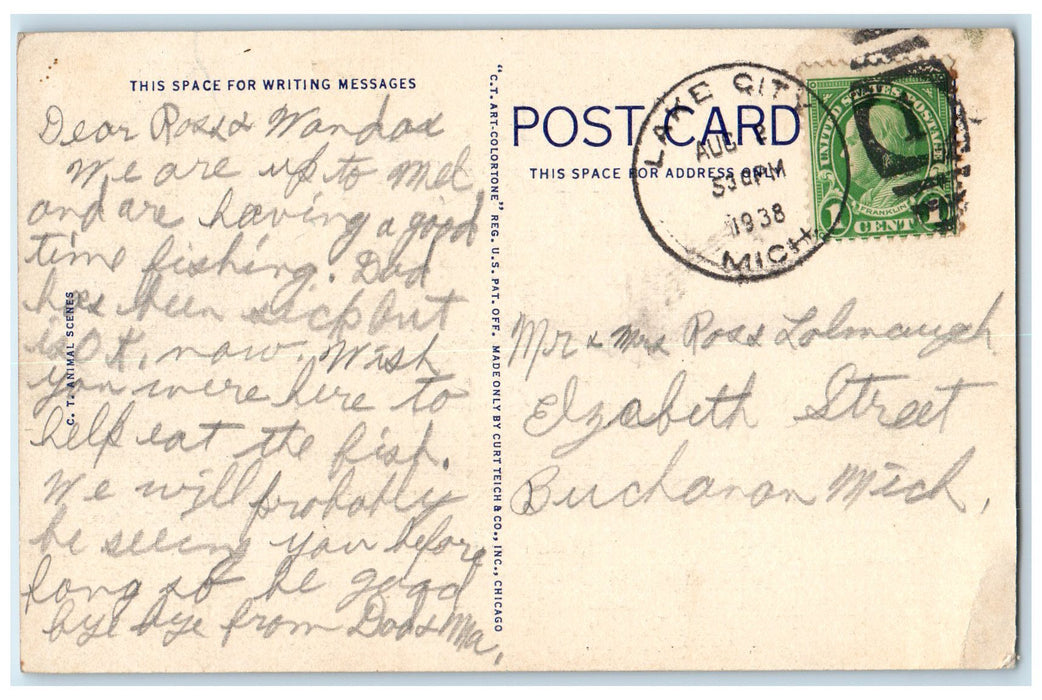 THIS SPACE FOR WRITING MESSAGES
Dear Ross & Wanda
We are up to
and are having a good
time fishing. Dad
has been sick but
is O K, now. Wish
you were here to
help eat the fish.
We will probably
be seeing you before
long so be good
bye bye from Dad & Ma.
C. T. ANIMAL SCENES
"C.T. ART-COLORTONE" REG. U.S. PAT. OFF. MADE ONLY BY CURT TEICH & CO., INC., CHICAGO
POST CARD
THIS SPACE FOR ADDRESS ONLY
LAKE CITY
AUG 2
530 PM
1938
MICH.
UNITED STATES POSTAGE
FRANKLIN
1 CENT 1
Mr & Mrs Ross Lolmaugh
Elzabeth Street
Buchanan Mich.